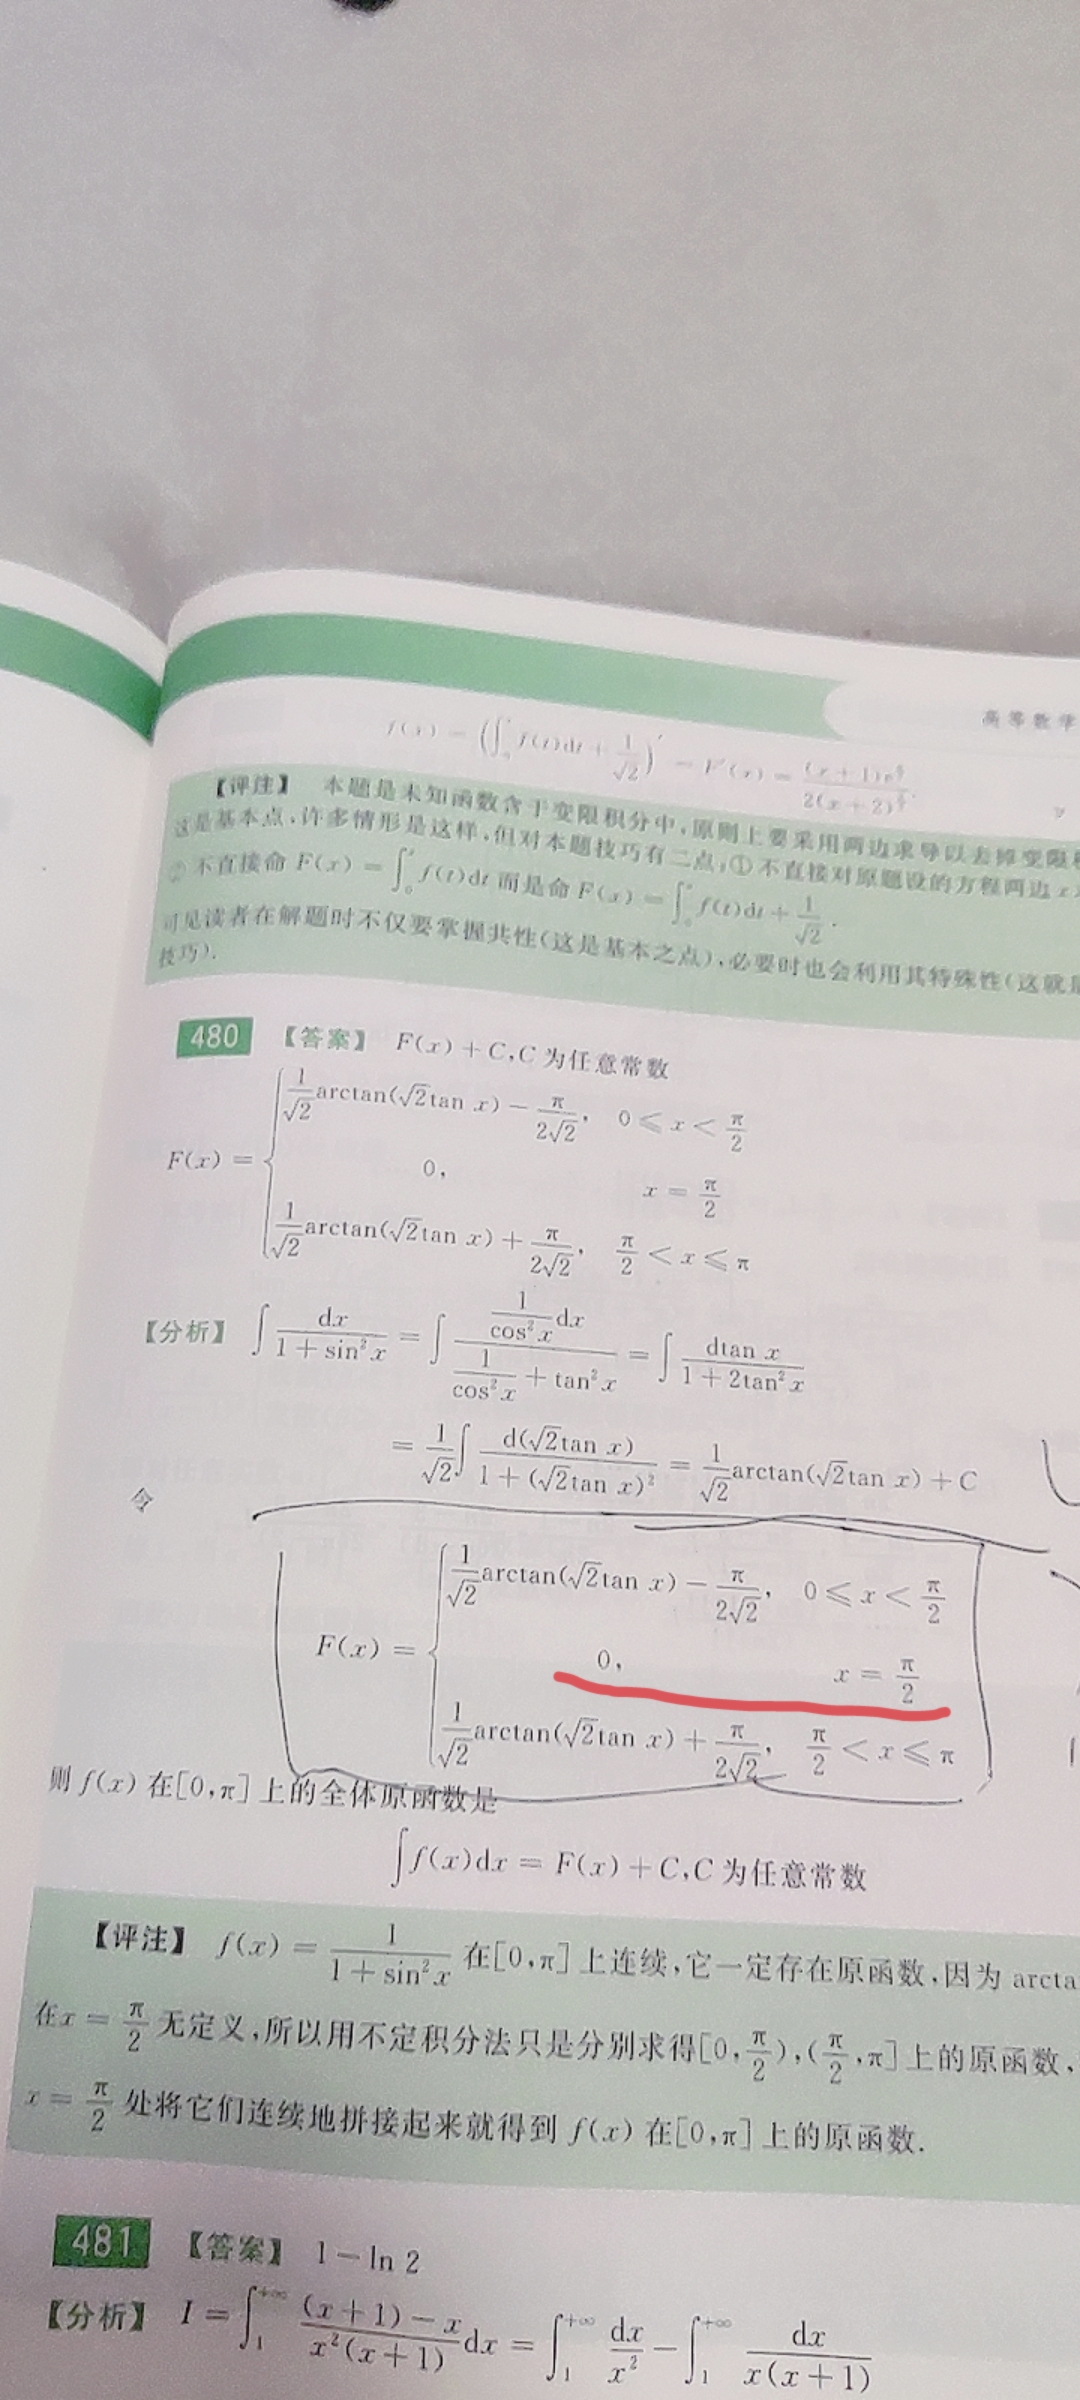 高等数学
f(x) = (∫₀ˣ f(t)dt + 1/√2)′ = F′(x) =
【评注】 本题是未知函数含于变限积分中,原则上要采用两边求导以去掉变限
这是基本点,许多情形是这样,但对本题技巧有二点:①不直接对原题设的方程两边
②不直接命 F(x) = ∫₀ˣ f(t)dt 而是命 F(x) = ∫₀ˣ f(t)dt + 1/√2.
可见读者在解题时不仅要掌握共性(这是基本之点),必要时也会利用其特殊性(这就是
技巧).
480 【答案】 F(x) + C,C 为任意常数
1/√2 arctan(√2tan x) − π/(2√2), 0 ⩽ x < π/2
F(x) = { 0, x = π/2
1/√2 arctan(√2tan x) + π/(2√2), π/2 < x ⩽ π
【分析】 ∫ dx/(1 + sin²x) = ∫ (1/cos²x dx)/(1/cos²x + tan²x) = ∫ dtan x/(1 + 2tan²x)
= 1/√2 ∫ d(√2tan x)/(1 + (√2tan x)²) = 1/√2 arctan(√2tan x) + C
令
1/√2 arctan(√2tan x) − π/(2√2), 0 ⩽ x < π/2
F(x) = { 0, x = π/2
1/√2 arctan(√2tan x) + π/(2√2), π/2 < x ⩽ π
则 f(x) 在[0,π] 上的全体原函数是
∫f(x)dx = F(x) + C,C 为任意常数
【评注】 f(x) = 1/(1 + sin²x) 在[0,π] 上连续,它一定存在原函数,因为 arcta
在 x = π/2 无定义,所以用不定积分法只是分别求得[0,π/2),(π/2,π] 上的原函数,
x = π/2 处将它们连续地拼接起来就得到 f(x) 在[0,π] 上的原函数.
481 【答案】 1 − ln 2
【分析】 I = ∫₁^{+∞} ((x + 1) − x)/(x²(x + 1)) dx = ∫₁^{+∞} dx/x² − ∫₁^{+∞} dx/(x(x + 1))